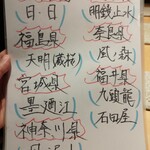 日・日
福島県
天明(蔵桜)
宮城県
墨廼江
神奈川県
明鏡止水
奈良県
風の森
福井県
九頭龍
石田屋